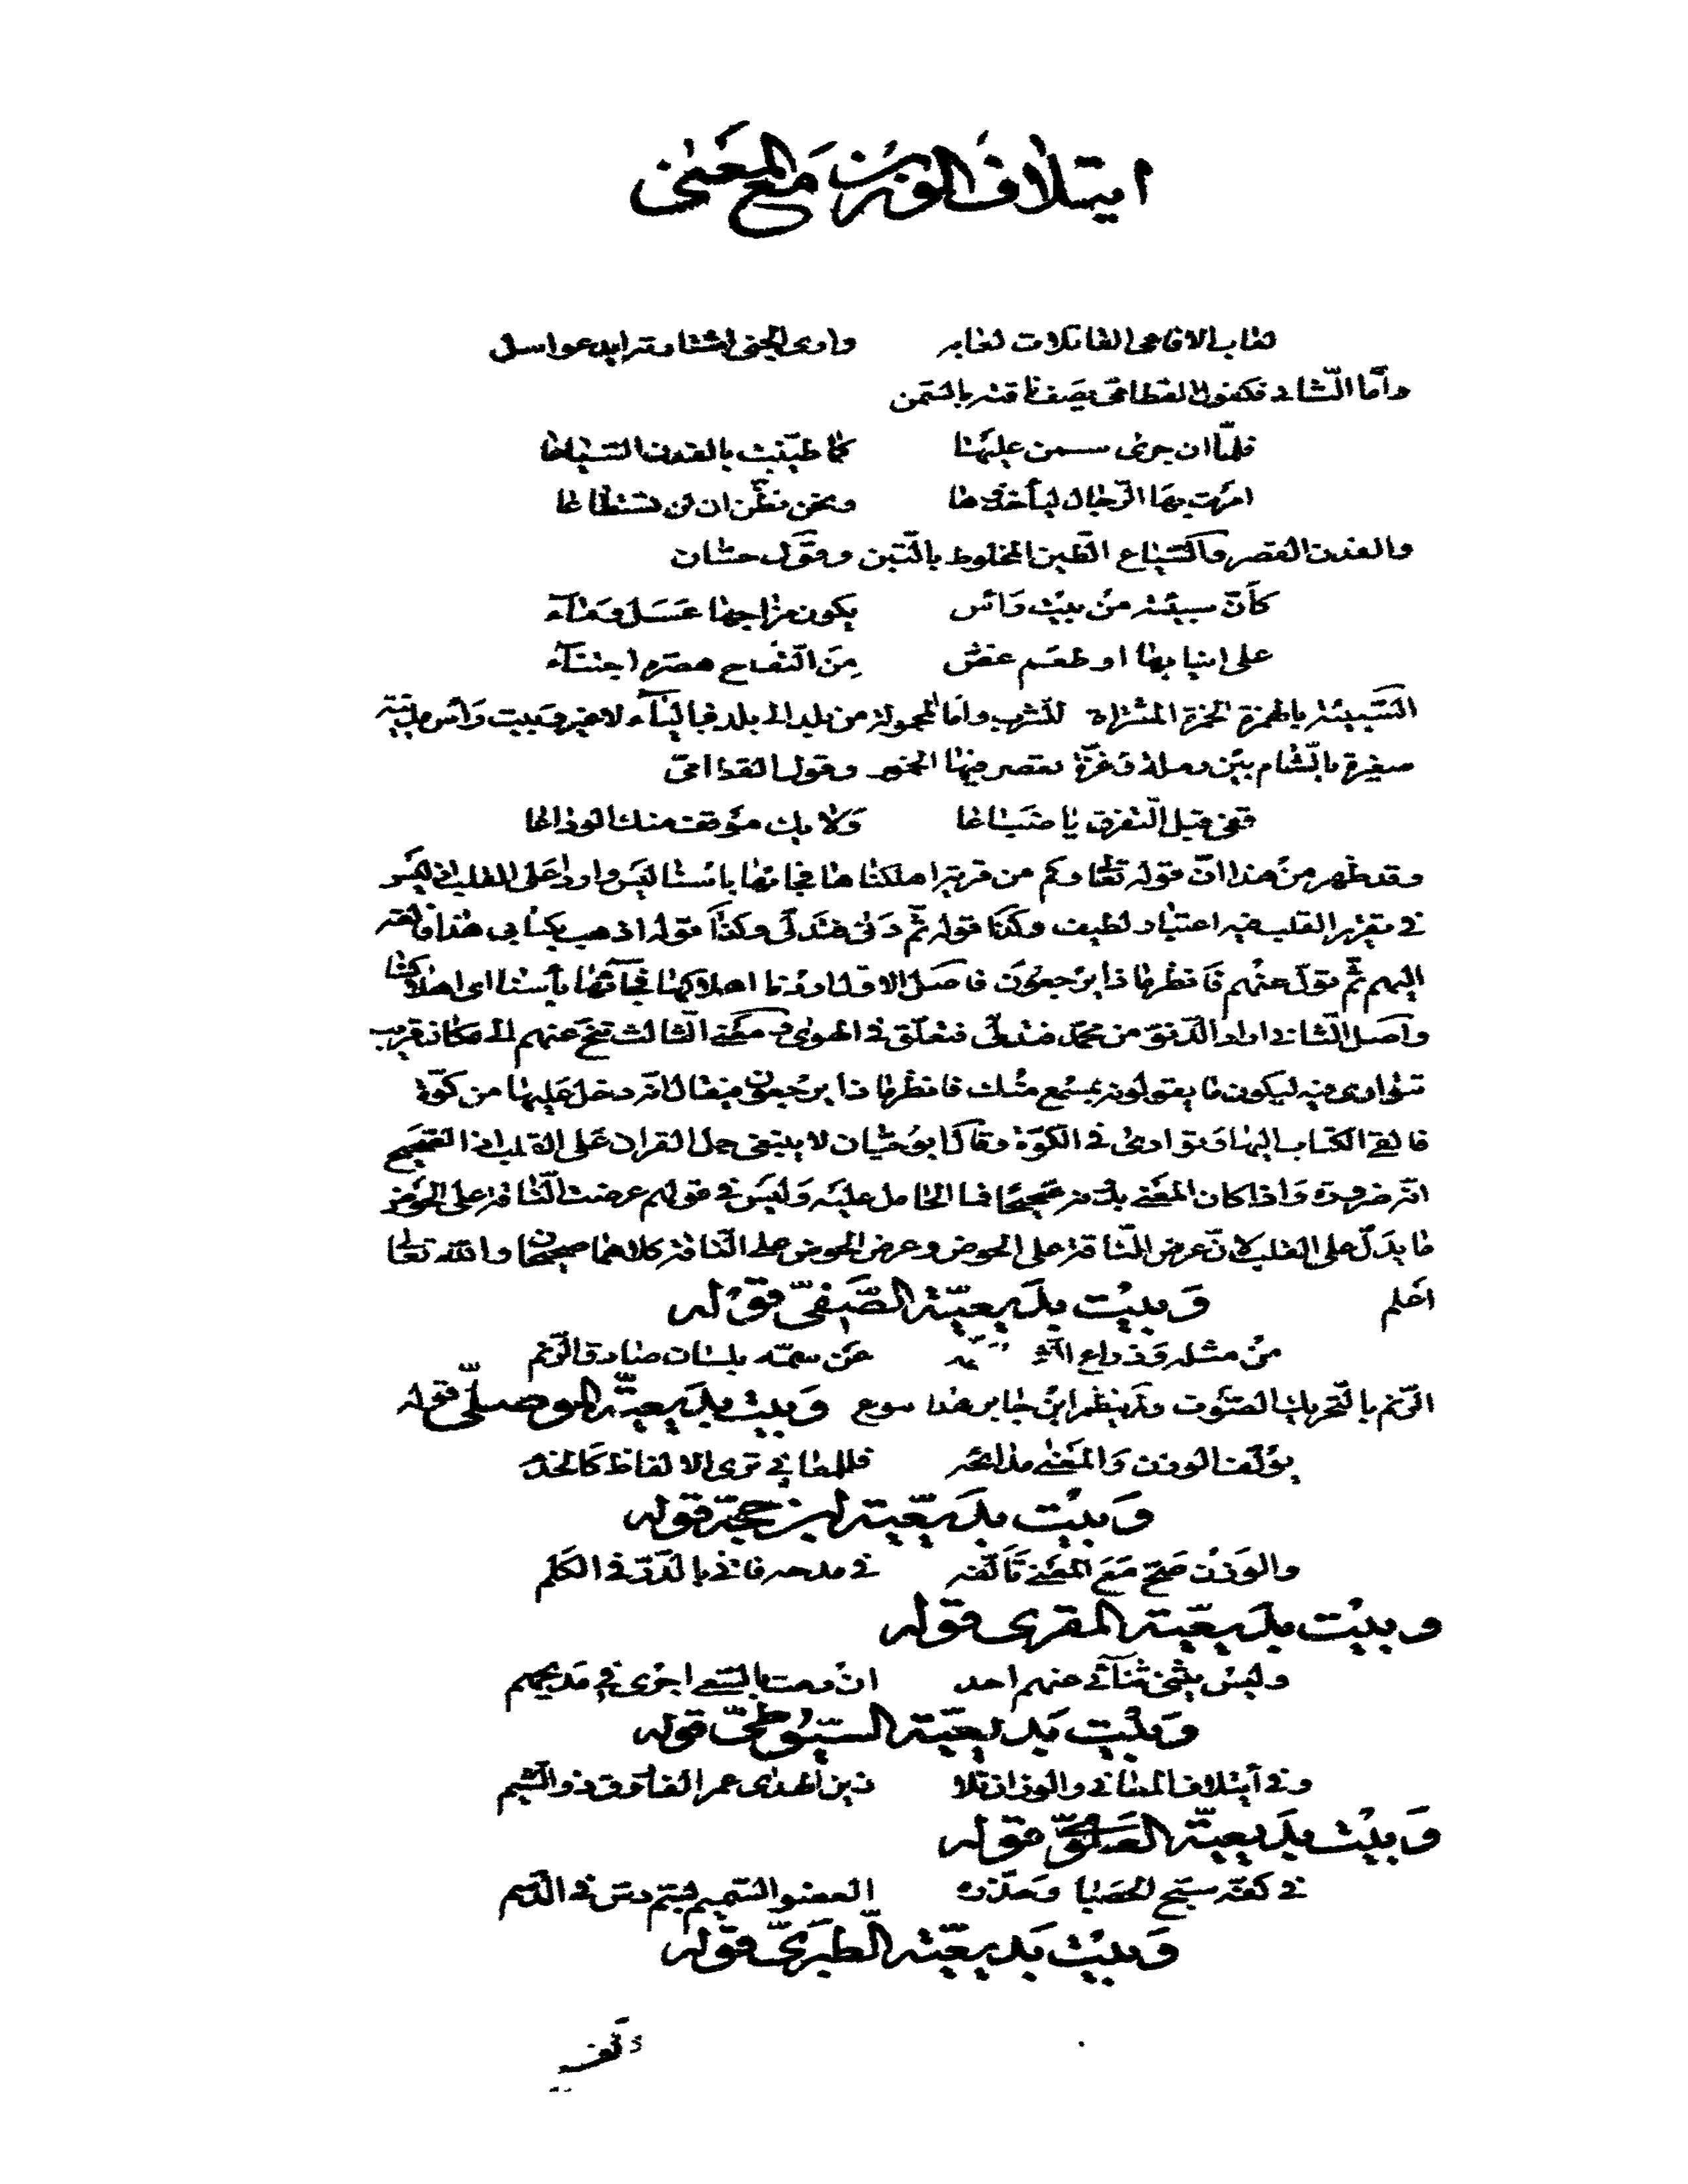 ايتلاف الوزن مع المعنى
لعاب الافاعى القاتلات لعابه وارى الجنى اشتارته ايد عواسل
وامّا الثّانى فكقول القطامىّ يصف ناقته بالسّمن
فلمّا ان جرى سمن عليها كما طيّنت بالفدن السّياعا
امرت بها الرّجال ليأخذوها ونحن نظنّ ان لن تستطاعا
والفدن القصر والسّياع الطّين المخلوط بالتّبن وقول حسّان
كأنّ سبيئة من بيت رأس يكون مزاجها عسل وماء
على انيابها او طعم غضّ من التّفاح هصّره اجتناء
السّبيئة بالهمزة الخمرة المشتراة للشّرب وامّا المحمولة من بلد الى بلد فبالياء لا غير وبيت رأس مدينة
صغيرة بالشّام بين رملة وغزّة تعصر فيها الخمور وقول القطامىّ
قفى قبل التّفرق يا ضباعا ولا يك موقف منك الوداعا
وقد ظهر من هذا انّ قوله تعالى وكم من قرية اهلكناها فجاءها بأسنا ليس واردا على القلب اذ ليس
فى تقرير القلب فيه اعتبار لطيف وكذا قوله ثمّ دنى فتدلّى وكذا قوله اذهب بكتابى هذا فالقه
اليهم ثمّ تولّ عنهم فانظر ماذا يرجعون فاصل الاول اردنا اهلاكها فجاءها بأسنا اى اهلاكنا
واصل الثّانى اراد الدّنوّ من محمّد فتدلّى فتعلّق فى الهوى ومعنى الثّالث تنحّ عنهم الى مكان قريب
تتوارى فيه ليكون ما يقولونه بمسمع منك فانظر ماذا يرجعون فيقال انّه دخل عليها من كوّة
فالقى الكتاب اليها وتوارى فى الكوّة وقال ابو حيّان لا ينبغى حمل القران على القلب اذ الصّحيح
انّه ضرورة واذا كان المعنى بدونه صحيحا فما الحامل عليه وليس فى قولهم عرضت النّاقة على الحوض
ما يدلّ على القلب لانّ عرض النّاقة على الحوض وعرض الحوض على النّاقة كلاهما صحيحان والله تعالى
اعلم وبيت بديعيّة الصّفىّ قوله
من مثله وذراع الشّاة عن سمّه بلسان صادق الرّنم
الرّنم بالتّحريك الصّوت ولم ينظم ابن جابر هذا النوع وبيت بديعيّة الموصلىّ قوله
يؤلّف الوزن والمعنى مدائحه فللمعانى ترى الالفاظ كالخدم
وبيت بديعيّة ابن حجّة قوله
والوزن صحّ مع المعنى تألّفه فى مدحه فأتى بالدّرّ فى الكلم
وبيت بديعيّة المقرى قوله
وليس يثنى ثنائى عنهم احد ان رمت بالسّعى اجرى فى مديحهم
وبيت بديعيّة السّيوطىّ قوله
وفى ايتلاف المعانى والوزان تلا زين الهدى عمر الفاروق ذو الشّيم
وبيت بديعيّة العلوىّ قوله
فى كفّه سبّح الحصبا العضو السّميم
وبيت بديعيّة الطبرىّ قوله